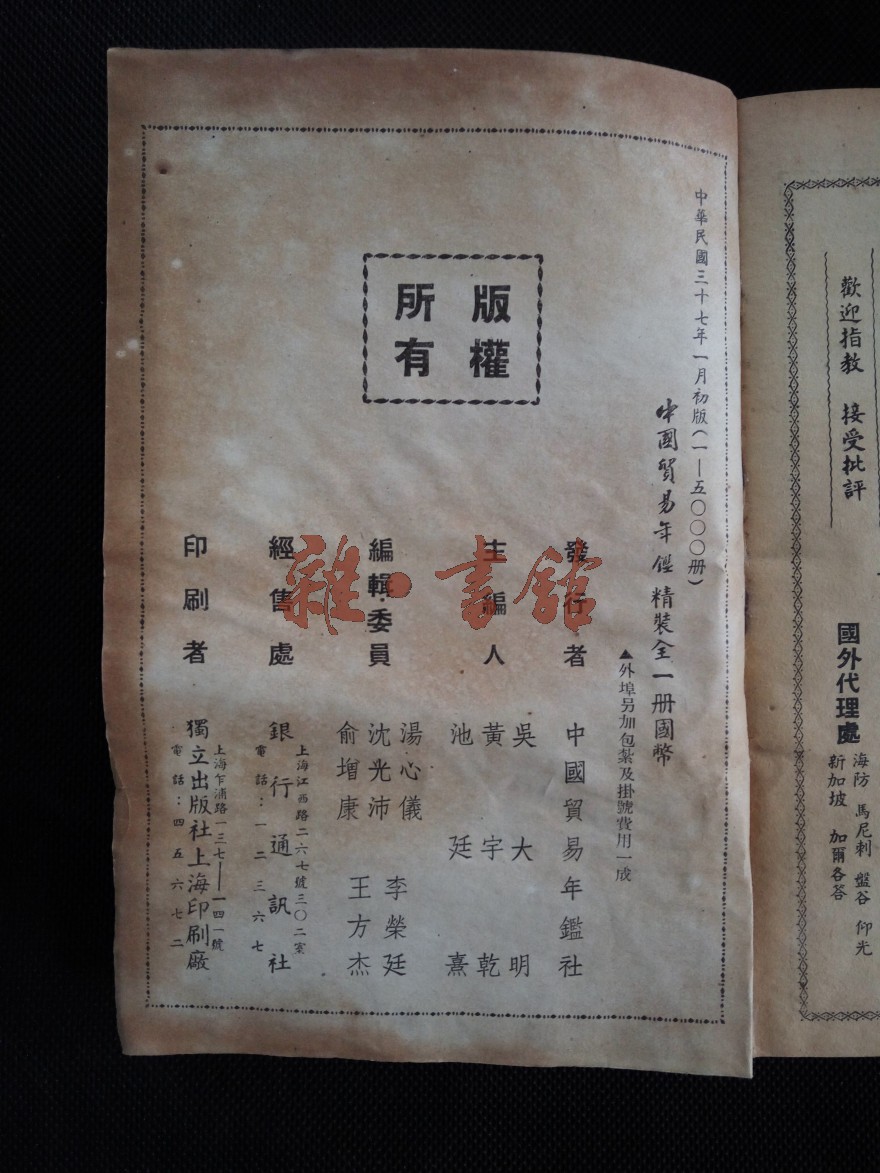 歡迎指教　接受批評
國外代理處
海防　馬尼剌　盤谷　仰光
新加坡　加爾各答
中華民國三十七年一月初版（一—五〇〇〇册）
中國貿易年鑑精裝全一册國幣
▲外埠另加包紮及掛號費用一成
版權
所有
發行者　中國貿易年鑑社
主編人　吳大明
黃宇乾
池廷熹
編輯委員　湯心儀　李榮廷
沈光沛　王方杰
俞增康
經售處　銀行通訊社
上海江西路二六七號三〇二室
電話：一二三六七
印刷者　獨立出版社上海印刷廠
上海乍浦路一三七—一四一號
電話：四五六七二
雜·書館